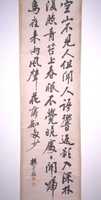 空山不見人但聞人語響返影入深林
復照青苔上春眠不覺曉處處聞啼
鳥夜来雨風聲花落知多少